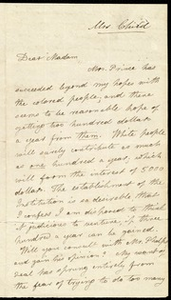 Mrs Child
Dear Madam
Mrs. Prince has
succeeded beyond my hopes with
the colored people, and there
seems to be reasonable hope of
getting two hundred dollars
a year from them. White people
will surely contribute as much
as one hundred a year, which
will from the interest of 5000
dollars. The establishment of the
Institution is so desirable that
I confess I am disposed to think
it judicious to venture, if three
hundred a year can be gained.
Will you consult with Mr Phelps
and gain his opinion? My want of
zeal has sprung entirely from
the fear of trying to do too many